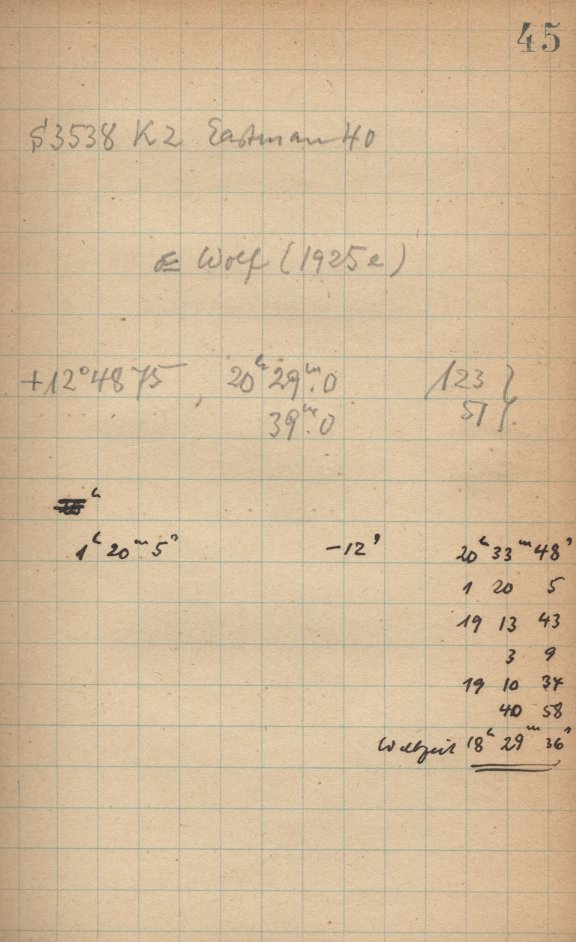 45
S3538 K2 Eastman 40
Wolf (1925e)
+12°4875 20ʰ29ᵐ.0 123 }
39ᵐ.0 51 }
h
1ʰ 20ᵐ 5ˢ -12' 20ʰ 33ᵐ 48ˢ
1 20 5
19 13 43
3 9
19 10 34
40 58
Weltzeit 18ʰ 29ᵐ 36ˢ